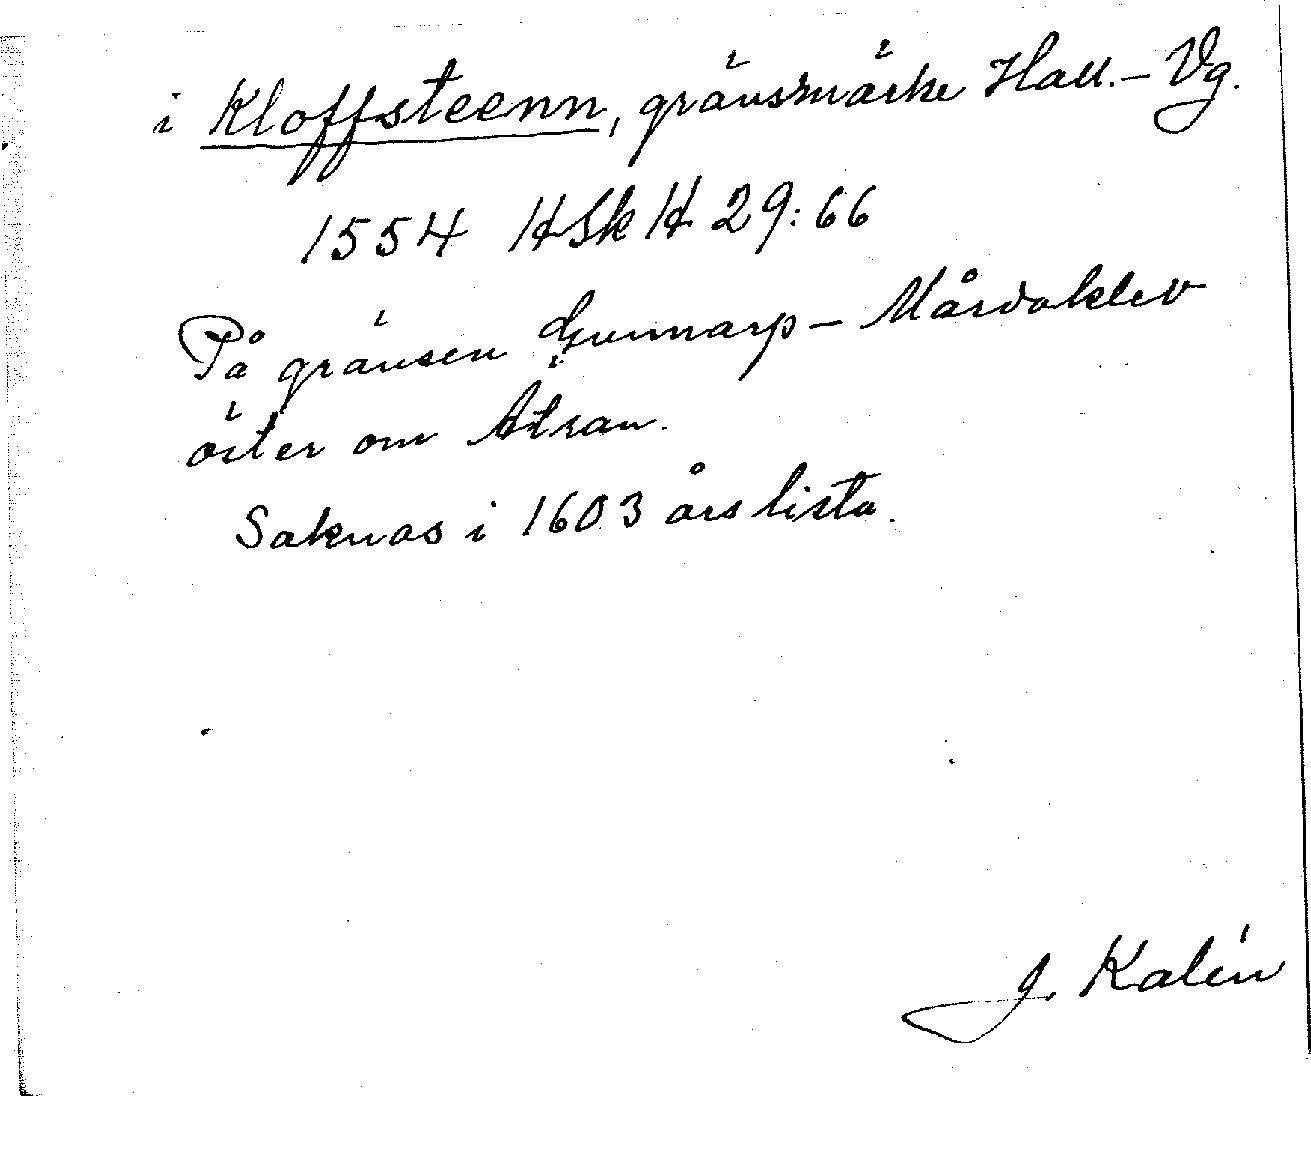 i Kloffsteenn, gränsmärke Hall.- Vg.
1554 HSkH 29:66
På gränsen Gunnarp - Mårdaklev
öster om Ätran.
Saknas i 1603 års lista.
J. Kalén